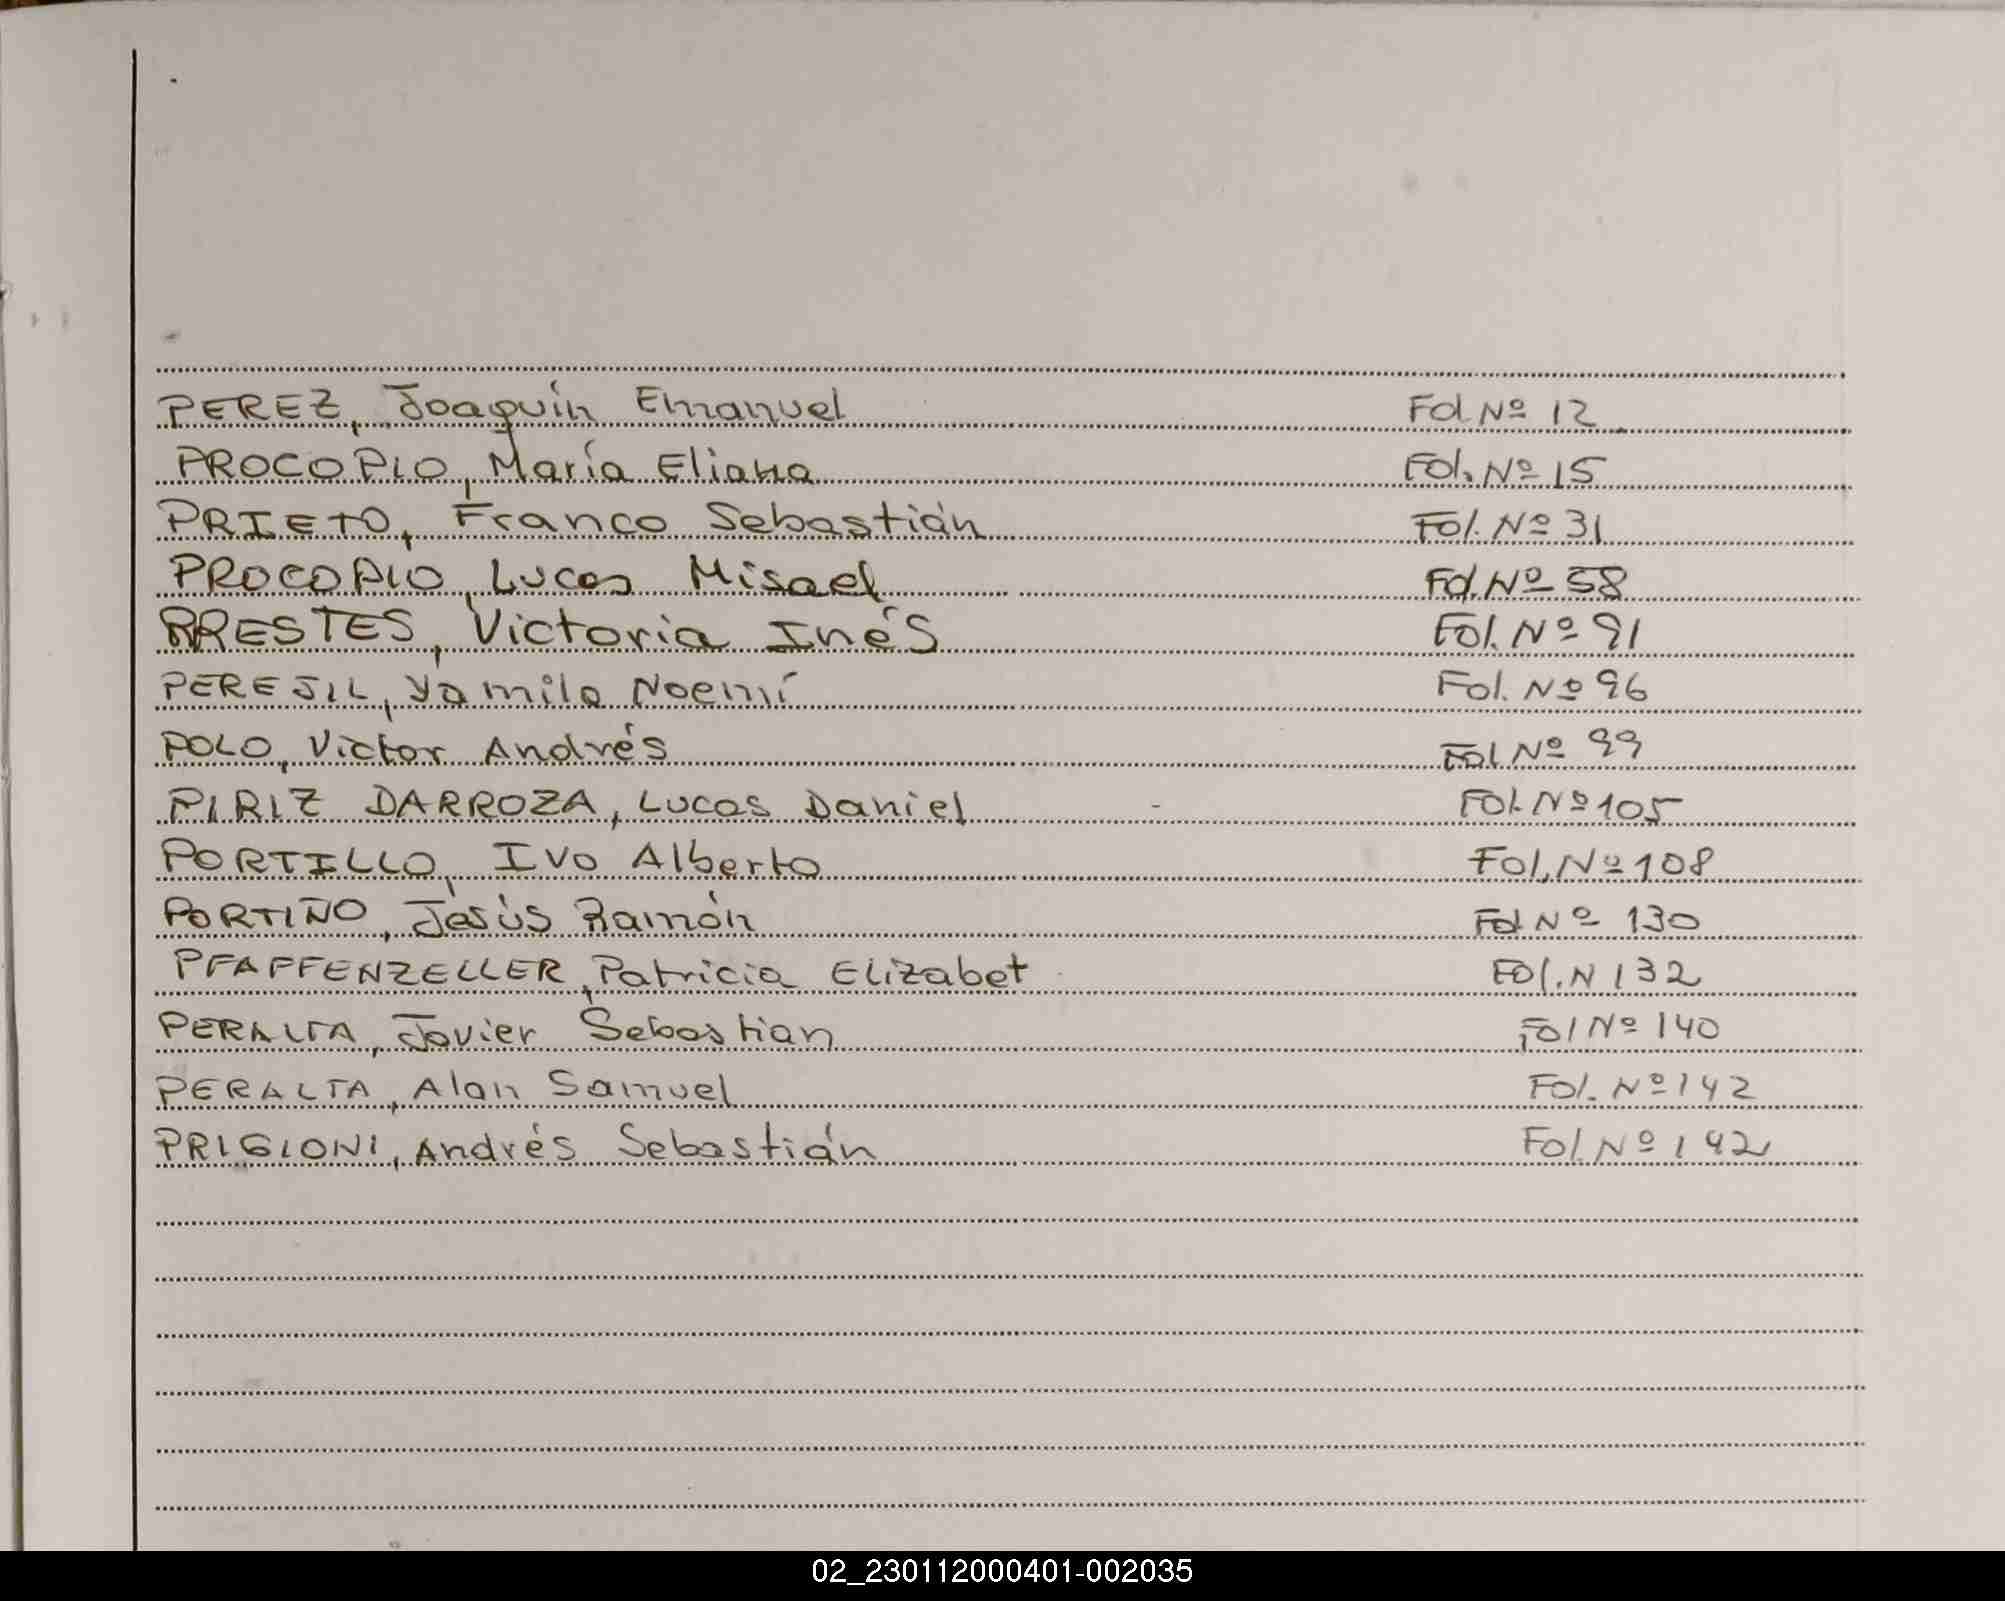 PEREZ, Joaquín Emanuel Fol Nº 12
PROCOPIO, María Eliana Fol. Nº 15
PRIETO, Franco Sebastián Fol. Nº 31
PROCOPIO, Lucas Misael Fol. Nº 58
PRESTES, Victoria Inés Fol. Nº 91
PEREJIL, Yamila Noemí Fol. Nº 96
POLO, Victor Andrés Fol Nº 99
PIRIZ DARROZA, Lucas Daniel Fol. Nº 105
PORTILLO, Ivo Alberto Fol. Nº 108
PORTIÑO, Jesús Ramón Fol Nº 130
PFAFFENZELLER, Patricia Elizabet Fol. N 132
PERALTA, Javier Sebastian Fol Nº 140
PERALTA, Alan Samuel Fol. Nº 142
PRIGIONI, Andrés Sebastián Fol. Nº 142
02_230112000401-002035